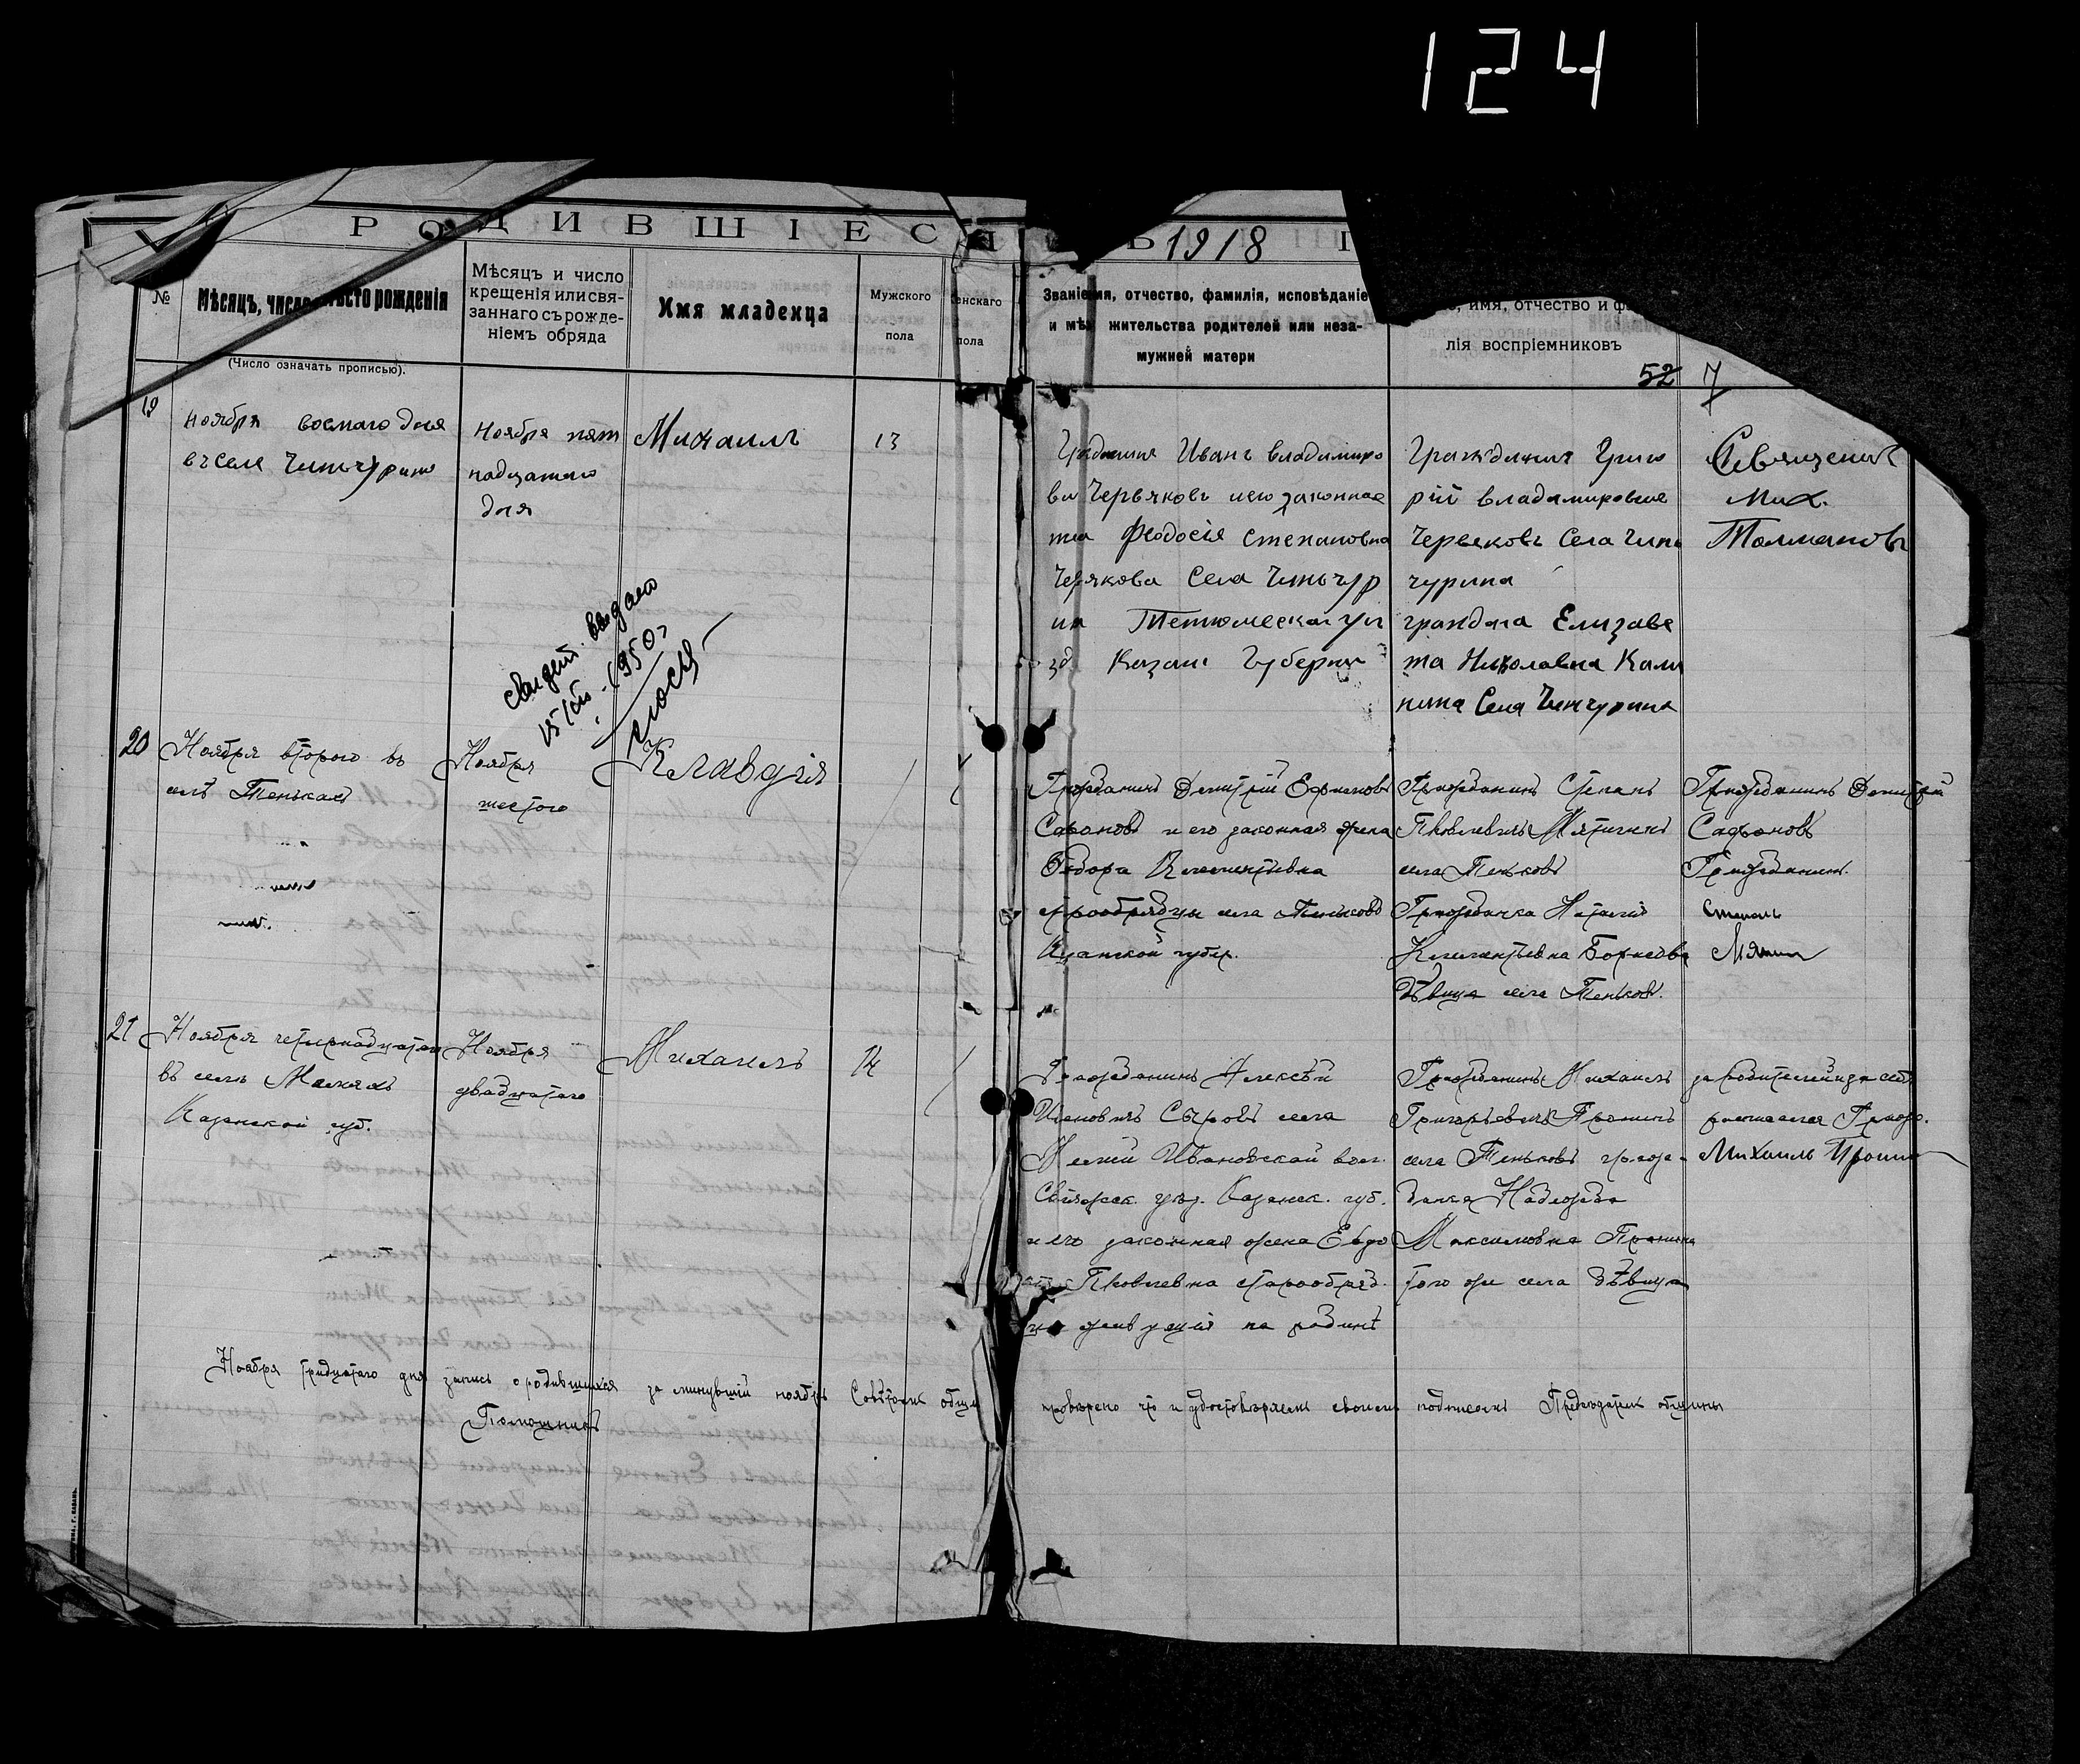 124
РОДИВШІЕСЯ
1918
№
Мѣсяцъ, число
мѣсто рожденія
(Число означать прописью).
Мѣсяцъ и число
крещенія или свя-
заннаго съ рожде-
ніемъ обряда
Имя младенца
Мужского
пола
енскаго
пола
Званіе
мя, отчество, фамилія, исповѣданіе
и мѣ
жительства родителей или неза-
мужней матери
имя, отчество и ф
лія воспріемниковъ
52
7
19
Ноября восмаго дня
въ Селе
Ноября пят
надцатаго
дня
Михаилъ
13
Иванъ Владимиро
Червяковъ и его законная
Феодосія Степановна
Села Чинчур
Казан Губерни
Гражданинъ Григо
рій Владимировичъ
Червяковъ Села Чин
чурина
граждана Елизаве
та Николавна Кали
нина Села Чинчурина
Священик
Мих.
Толмачовъ
свидет. выдано
1950 г
20
Ноября второго въ
селѣ Тенькахъ
Ноября
шестого
Клавдія
Гражданинъ Дмитрій Ефимовъ
Сафоновъ и его законная жена
Клементьевна
старообрядцы села Теньковъ
Казанской губер.
Гражданинъ Степанъ
Яковлевичъ Мятигинъ
села Теньковъ
Гражданка Наталія
Клементьевна
дѣвица села Теньковъ.
Гражданинъ Дмитрій
Сафоновъ
Гражданинъ
Степанъ
21
Ноября четырнадцатаго
въ селѣ
Казанской губ.
Ноября
двадцатаго
Михаилъ
14
Гражданинъ Алексѣй
Ивановичъ Сыровъ села
Ивановской вол.
Свіяжск. уѣзд. Казанск. губ.
и его законная жена Евдо
Яковлевна старообряд.
цы живущія на родинѣ
Гражданинъ Михаилъ
Григорьевичъ Пронинъ
села Теньковъ граж-
данка Надежда
Максимовна Пронина
того же села дѣвица
за родителей и за себя
росписался Граж.
Михаилъ Пронинъ
Ноября тридцатаго дня запись о родившихся за минувшій ноябрь Совѣтомъ общи
провѣрено что и удостовѣряемъ своими подписями Предсѣдатель общины
Помощникъ